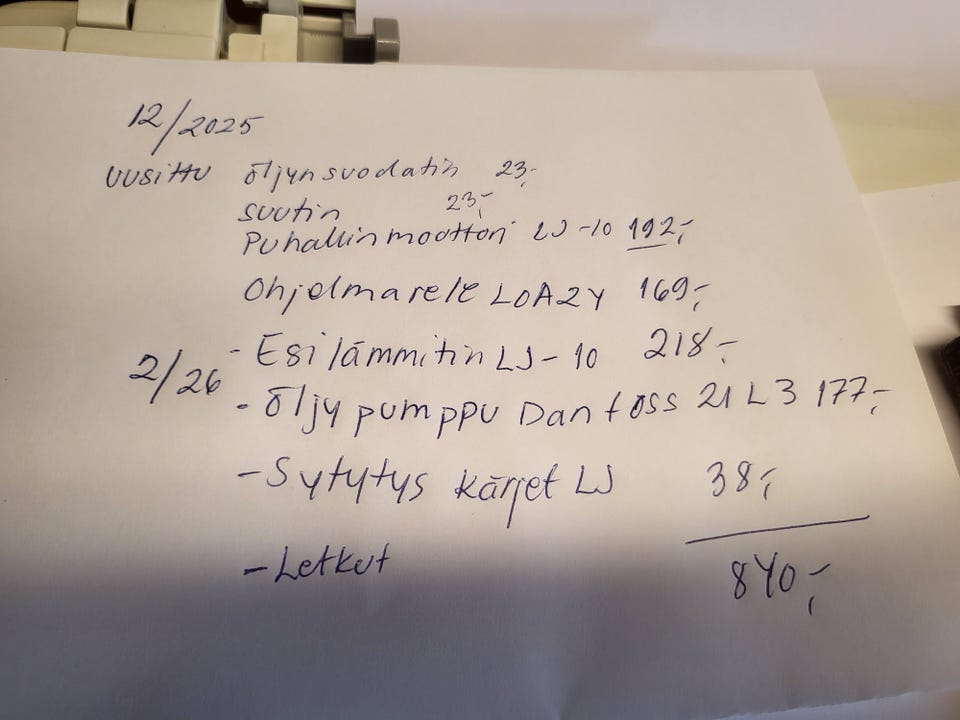 12/2025
uusittu öljynsuodatin 23,-
suutin 23,-
Puhallinmoottori LJ-10 192,-
Ohjelmarele LOA24 169,-
- Esilämmitin LJ-10 218,-
2/26
- Öljypumppu Danfoss 21 L3 177,-
- Sytytys kärjet LJ 38,-
- Letkut
840,-